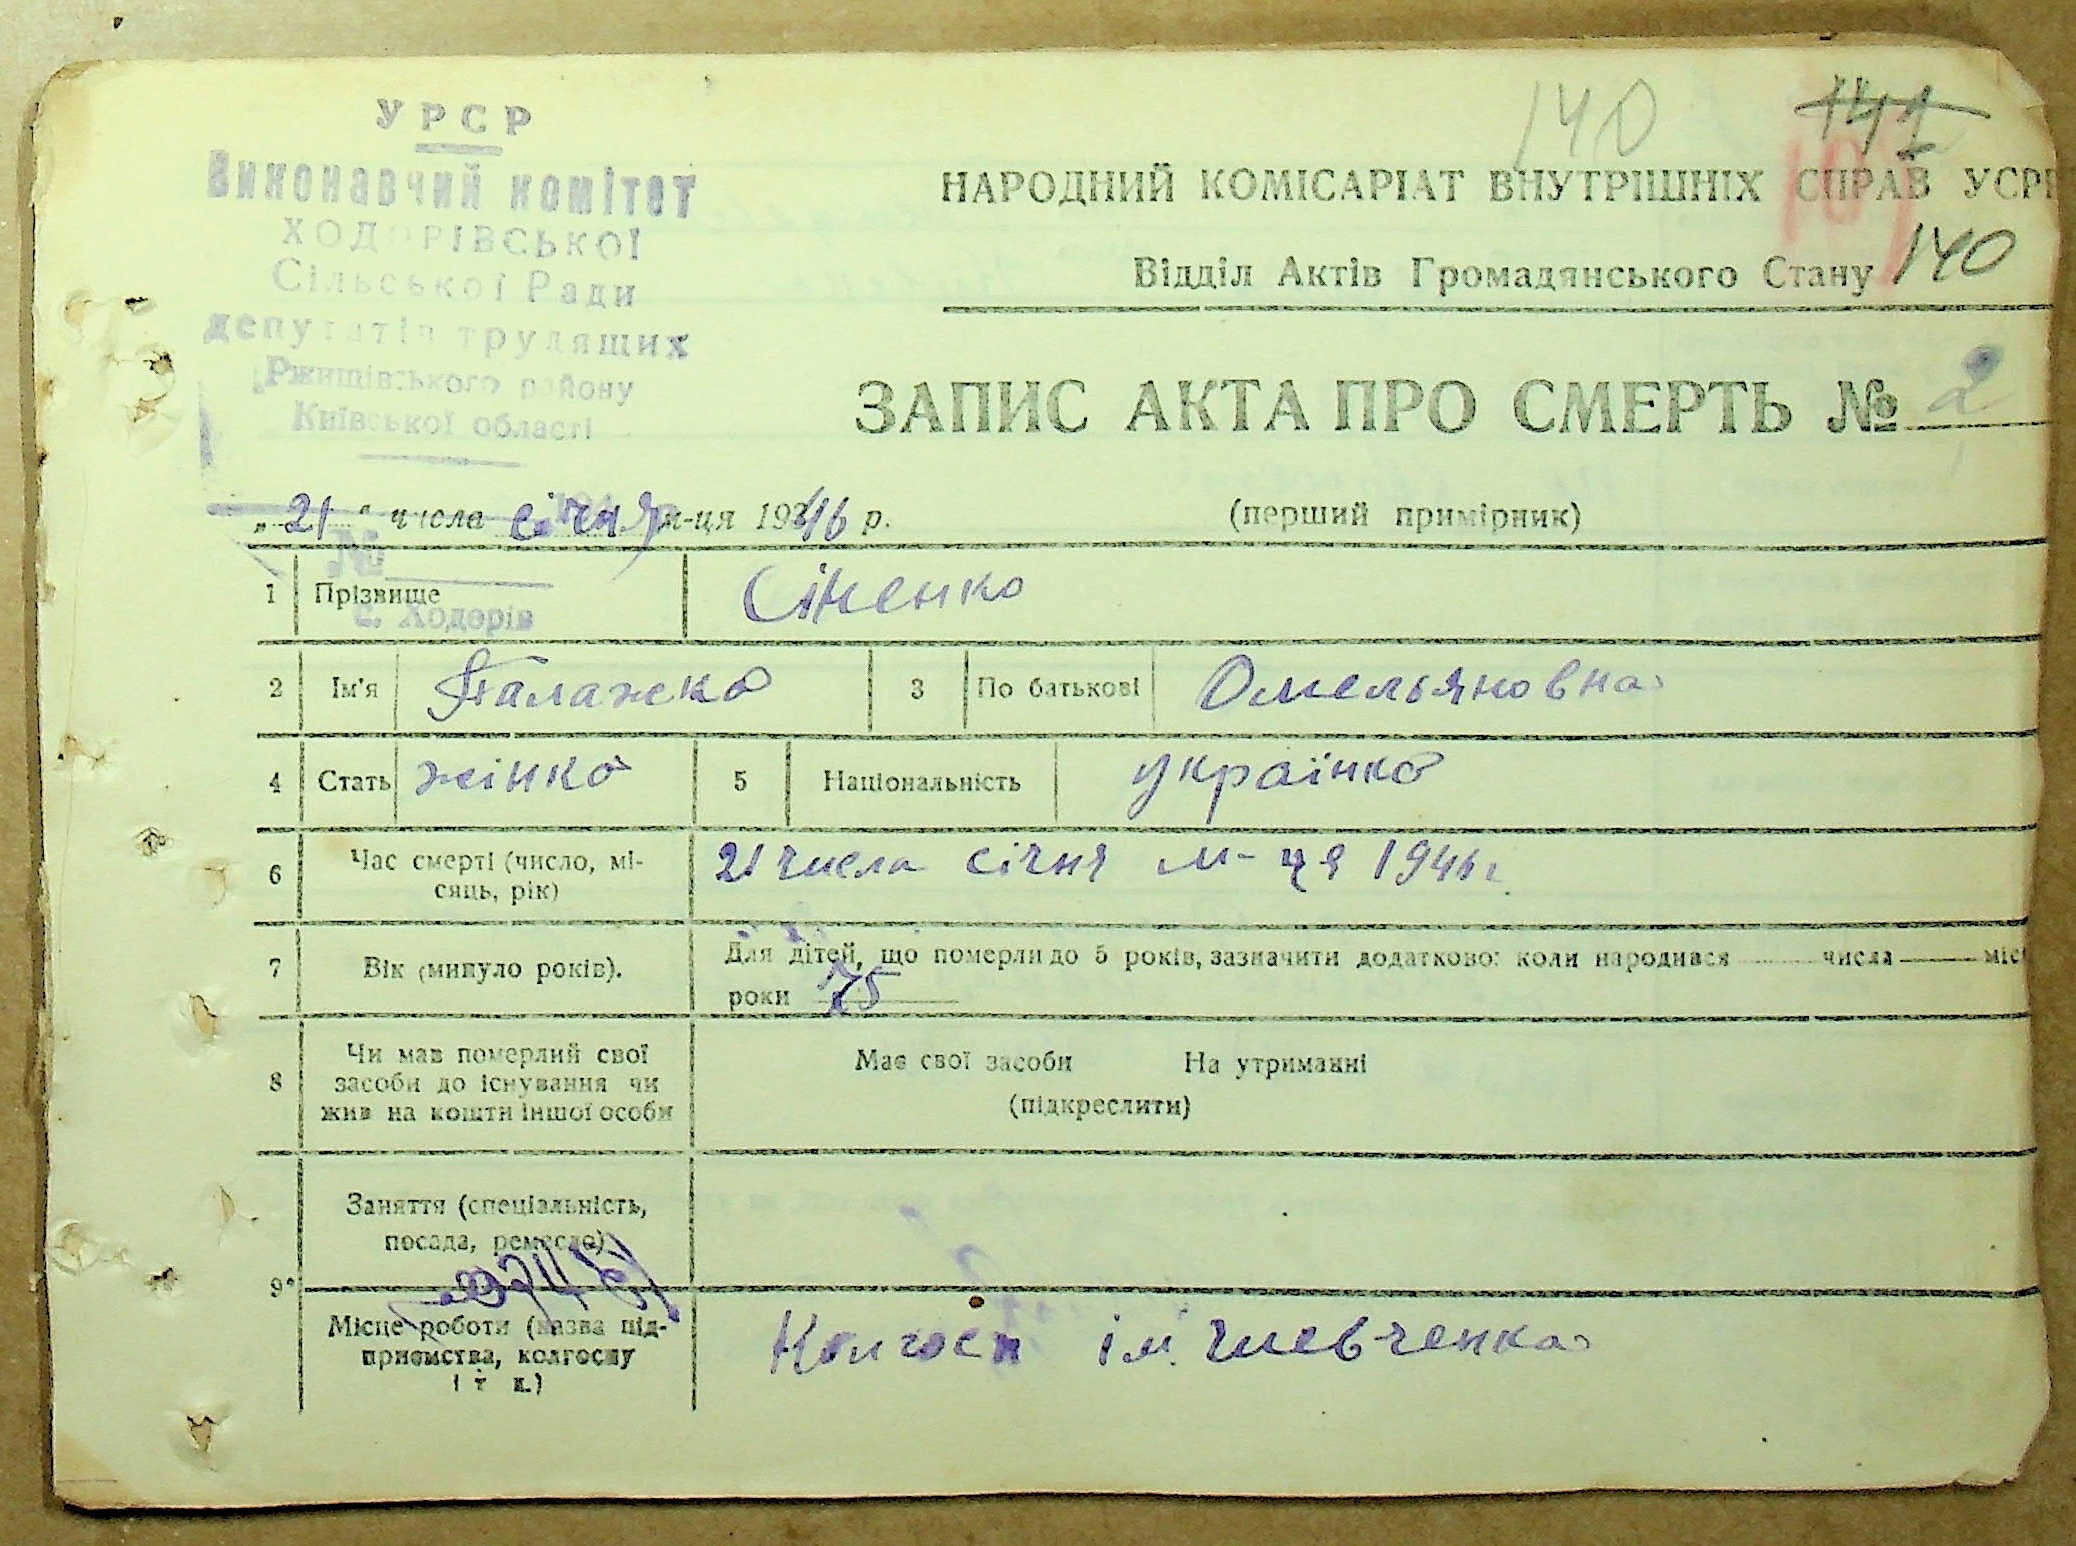 УРСР
Виконавчий комітет
ХОДОРІВСЬКОЇ
Сільської Ради
депутатів трудящих
Ржищівського району
Київської області
140 141
101
НАРОДНИЙ КОМІСАРІАТ ВНУТРІШНІХ СПРАВ УСРР
Відділ Актів Громадянського Стану 140
ЗАПИС АКТА ПРО СМЕРТЬ № 2
„21“ числа січня м-ця 1946 р. (перший примірник)
№
1 Прізвище Сіненко
с. Ходорів
2 Ім'я Палажка 3 По батькові Омельяновна
4 Стать жінка 5 Національність українка
6 Час смерті (число, мі-
сяць, рік) 21 числа січня м-ця 1946 г
7 Вік (минуло років). Для дітей, що померли до 5 років, зазначити додатково: коли народився числа міс
роки 75
8 Чи мав померлий свої
засоби до існування чи
жив на кошти іншої особи
Має свої засоби На утриманні
(підкреслити)
9 Заняття (спеціальність,
посада, ремесло)
Місце роботи (назва під-
приємства, колгоспу
і т. д.)
Колгосп ім. Шевченка